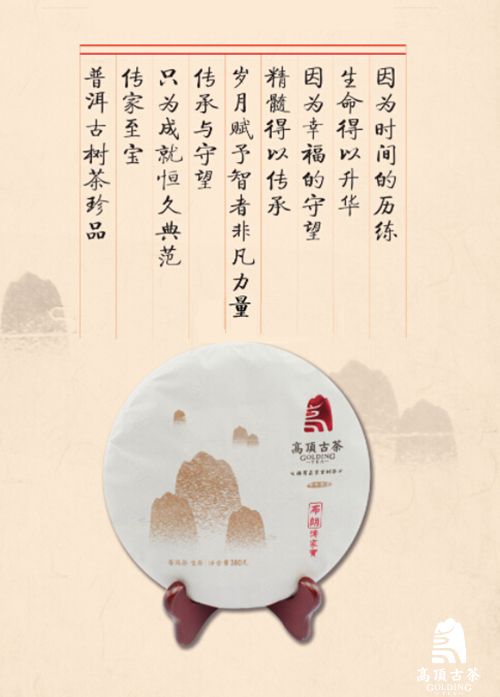 因为时间的历练
生命得以升华
因为幸福的守望
精髓得以传承
岁月赋予智者非凡力量
传承与守望
只为成就恒久典范
传家至宝
普洱古树茶珍品
高頂古茶
GOLDING
TEA
布朗
傳家寶
普洱茶 生茶 净含量380克
高頂古茶
GOLDING
TEA